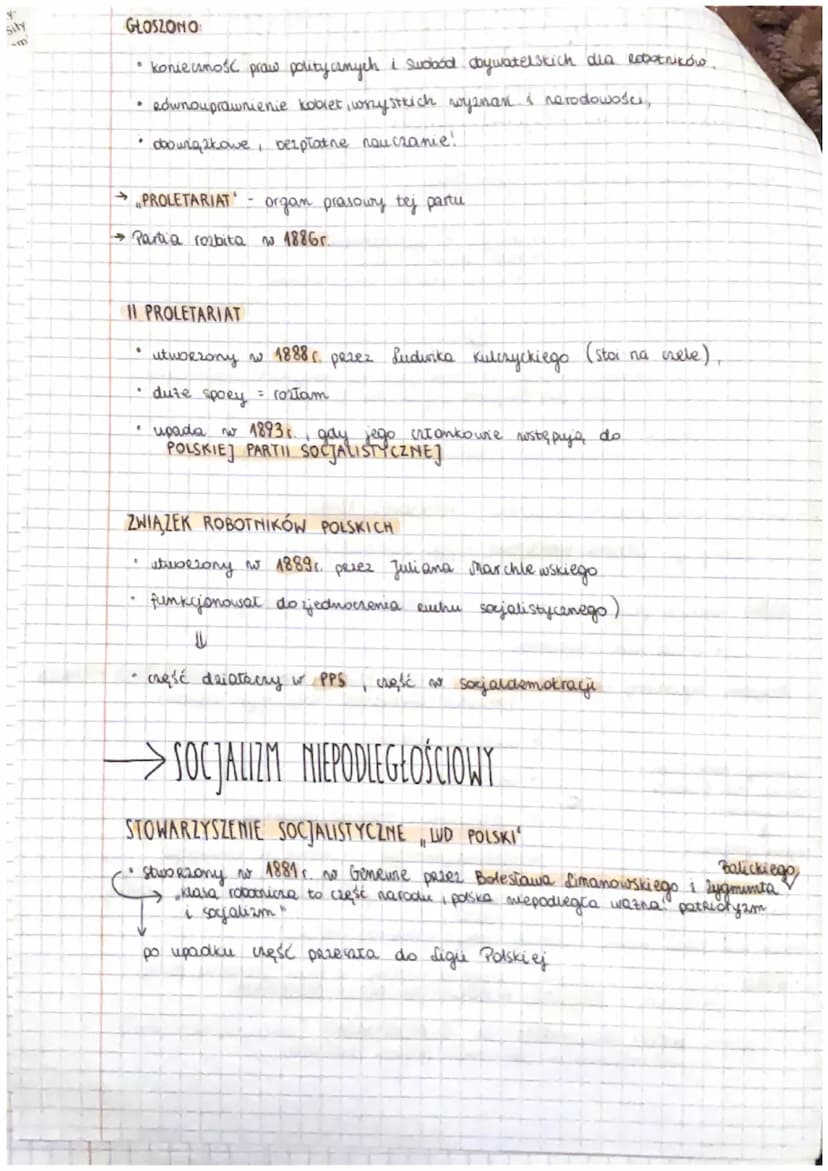 y
sity
-m
GŁOSZONO:
• konieczność praw politycznych i swobód obywatelskich dla robotników,
• równouprawnienie kobiet, wszystkich wyznań i narodowości,
• obowiązkowe, bezpłatne nauczanie!
→ „PROLETARIAT" - organ prasowy tej partii
→ Partia rozbita w 1886r.
II PROLETARIAT
• utworzony w 1888r. przez Ludwika Kulczyckiego (stoi na czele),
• duże spory = rozłam
• upada w 1893r., gdy jego członkowie wstępują do
POLSKIEJ PARTII SOCJALISTYCZNEJ
ZWIĄZEK ROBOTNIKÓW POLSKICH
• utworzony w 1889r. przez Juliana Marchlewskiego
• funkcjonował do zjednoczenia ruchu socjalistycznego)
⇓
• część działaczy w PPS, część w socjaldemokracji
→ SOCJALIZM NIEPODLEGŁOŚCIOWY
STOWARZYSZENIE SOCJALISTYCZNE „LUD POLSKI"
• stworzony w 1881r. w Genewie przez Bolesława Limanowskiego i Zygmunta Balickiego
→ „klasa robotnicza to część narodu, polska niepodległa ważna! patriotyzm
i socjalizm"
po upadku część przeszła do Ligii Polskiej